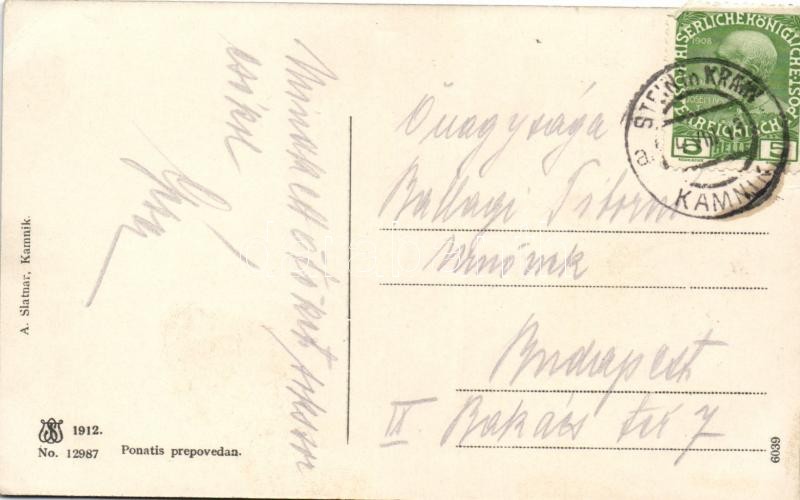 Mindkettőtöket sokszor
csókol
A. Slatnar, Kamnik.
1912.
No. 12987 Ponatis prepovedan.
KAISERLICHE KÖNIGLICHE ÖSTERREICHISCHE POST
1908
5 HELLER 5
STEIN in KRAIN
KAMNIK
a
Őnagysága
Ballagi Tiborné
Úrnőnek
Budapest
IX. Bakács tér 7
6039